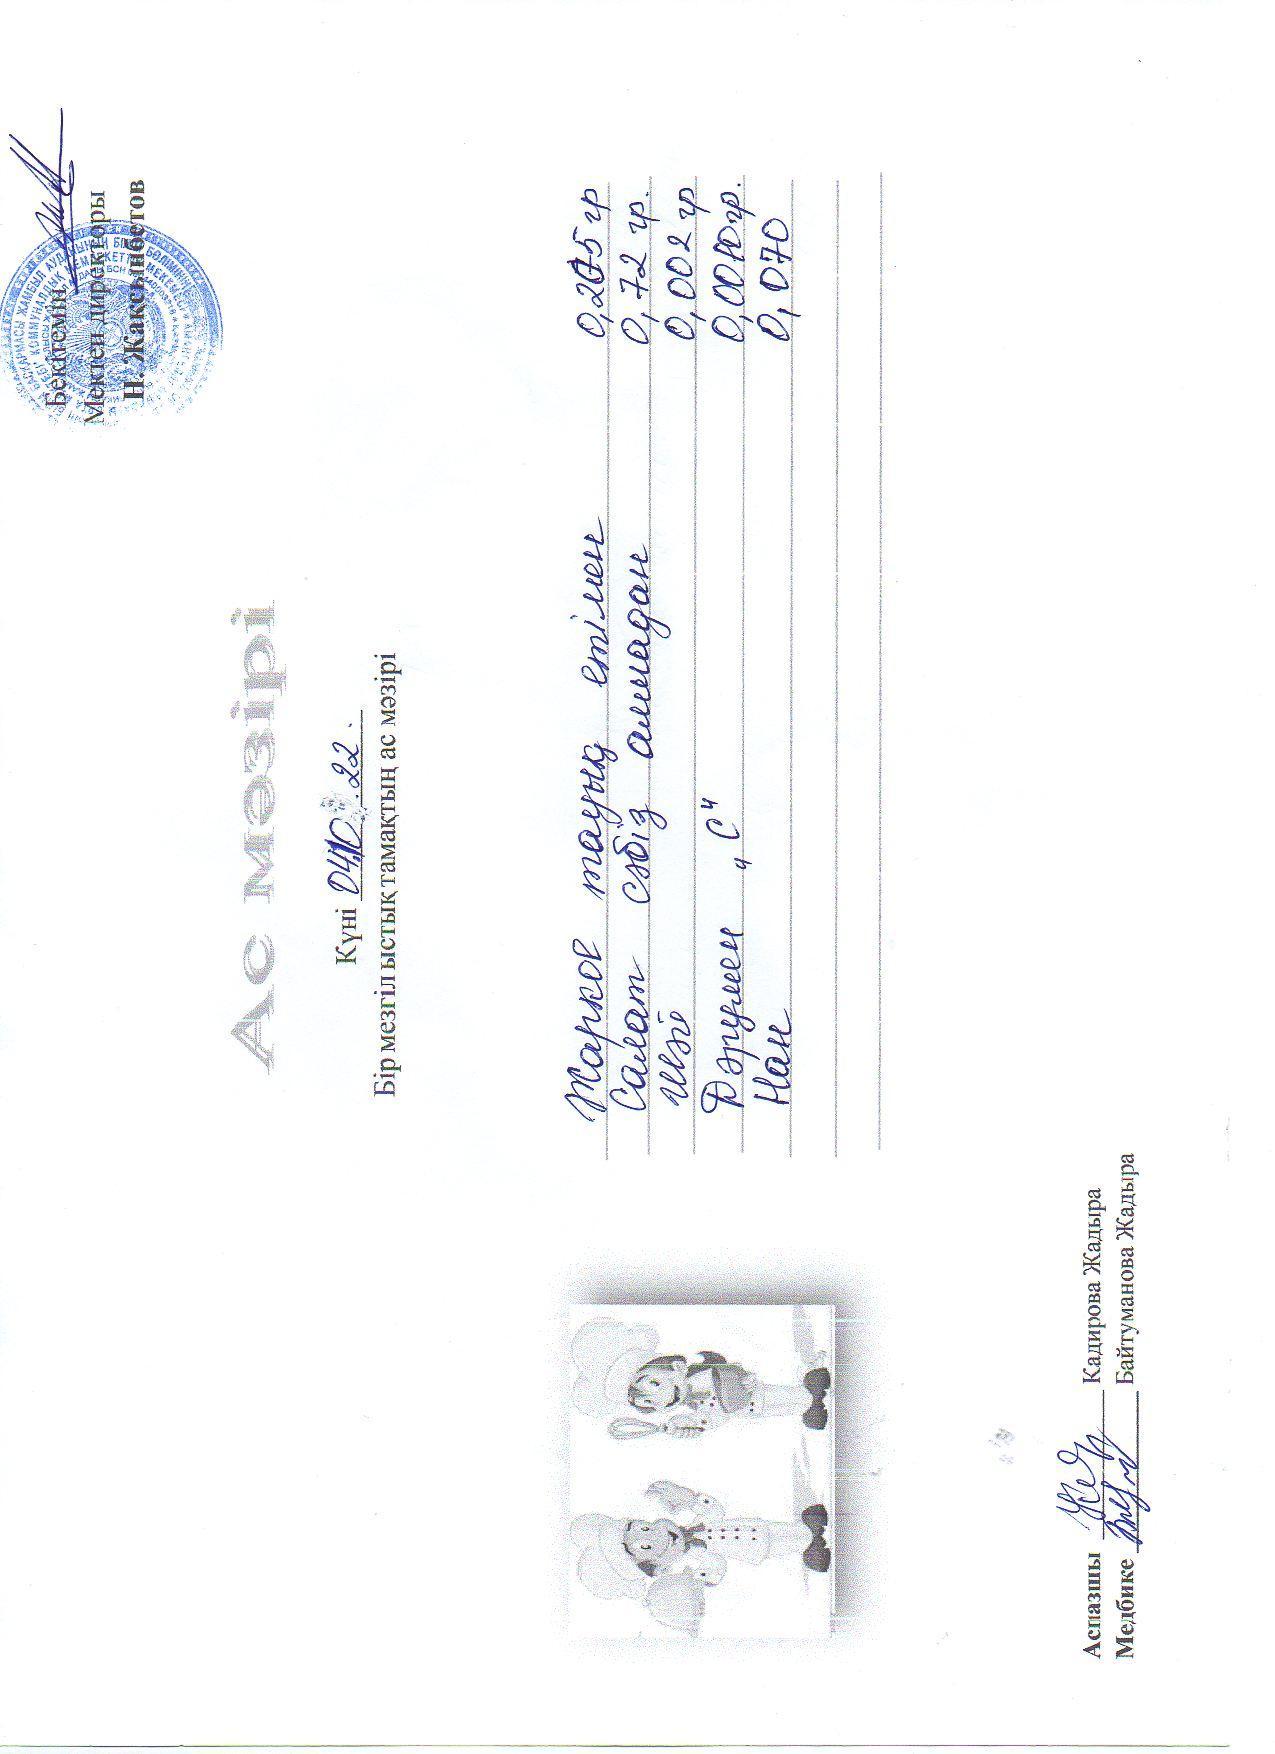 Бекітемін
Мектеп директоры
Н. Жаксынбетов
Ас мәзірі
Күні 04.10.22.
Бір мезгіл ыстық тамақтың ас мәзірі
Жаркое тауық етімен 0,205 гр
Салат сәбіз алмадан 0,72 гр.
Шәй 0,002 гр
Дәрумен "С" 0,0010гр.
Нан 0,070
Аспазшы Кадирова Жадыра
Медбике Байтуманова Жадыра